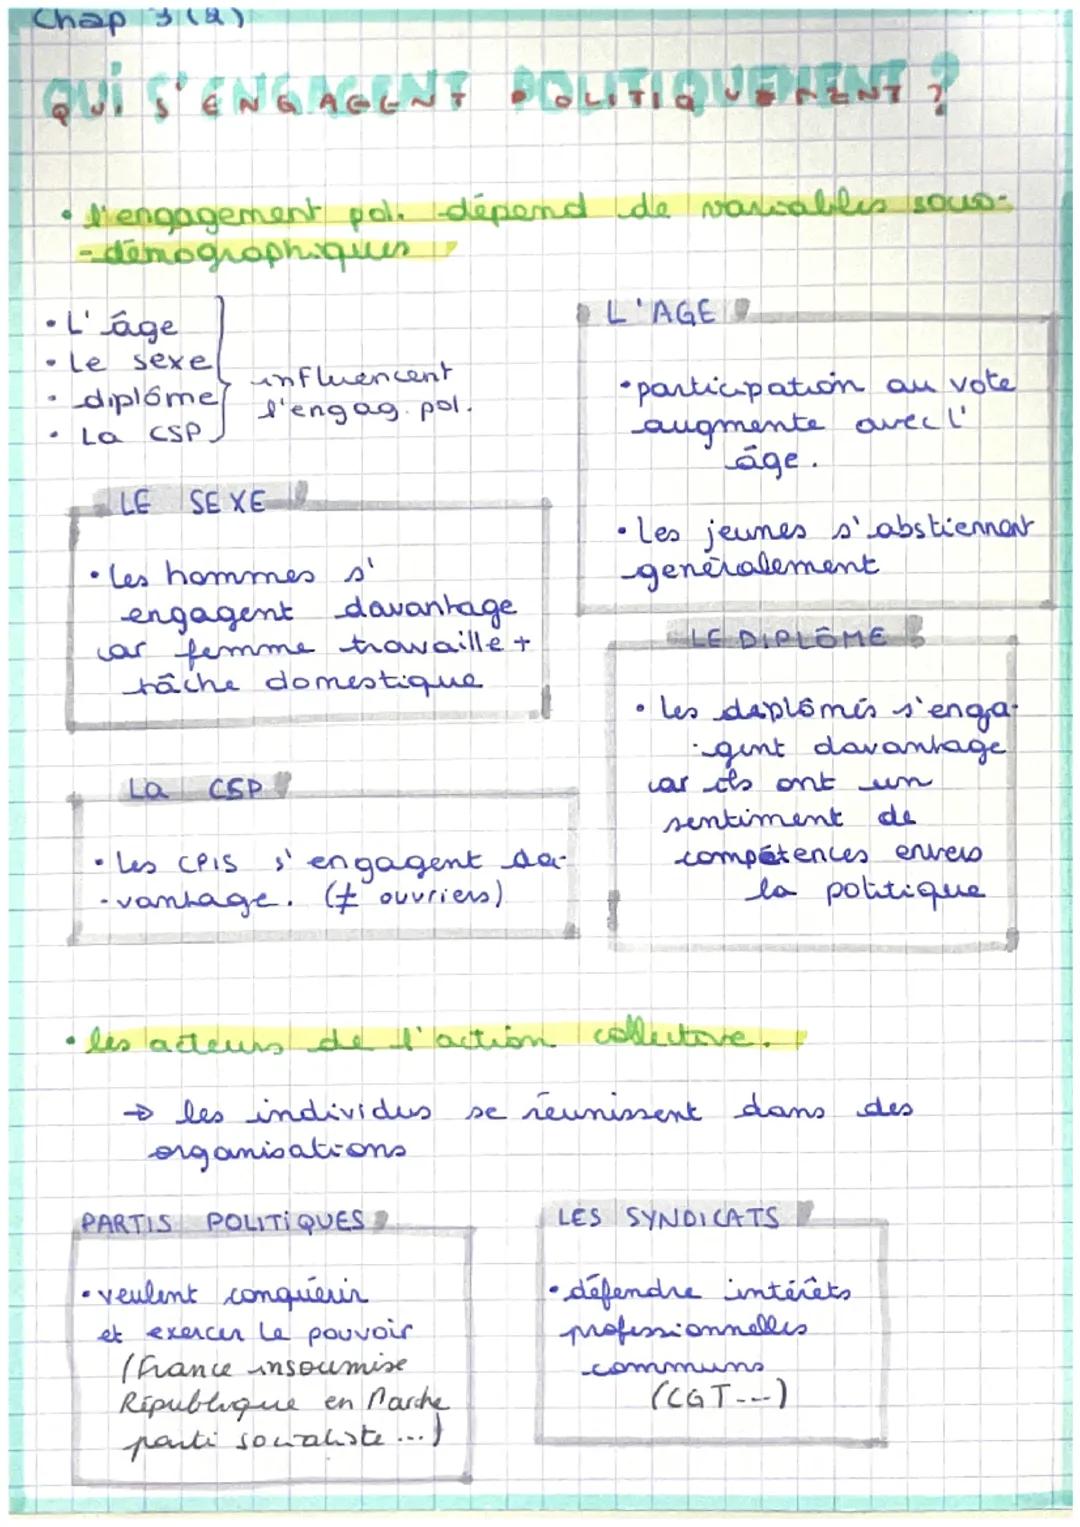 Chap 3 (2)
QUI S'ENGAGENT POLITIQUEMENT ?
• l'engagement pol. dépend de variables socio-
-démographiques
• L'âge
• Le sexe
• diplôme
• La CSP
influencent
l'engag. pol.
L'AGE
• participation au vote
augmente avec l'
âge.
• Les jeunes s'abstiennent
généralement
LE SEXE
• Les hommes s'
engagent davantage
car femme travaille +
tâche domestique
LE DIPLÔME
• les diplômés s'enga-
-gent davantage
car ils ont un
sentiment de
compétences envers
la politique
La CSP
• Les CPIS s'engagent da-
-vantage. (≠ ouvriers)
• les acteurs de l'action collective.
→ les individus se réunissent dans des
organisations
PARTIS POLITIQUES
• veulent conquérir
et exercer le pouvoir
(France insoumise
République en Marche
parti socialiste ...)
LES SYNDICATS
• défendre intérêts
professionnelles
communs
(CGT ---)